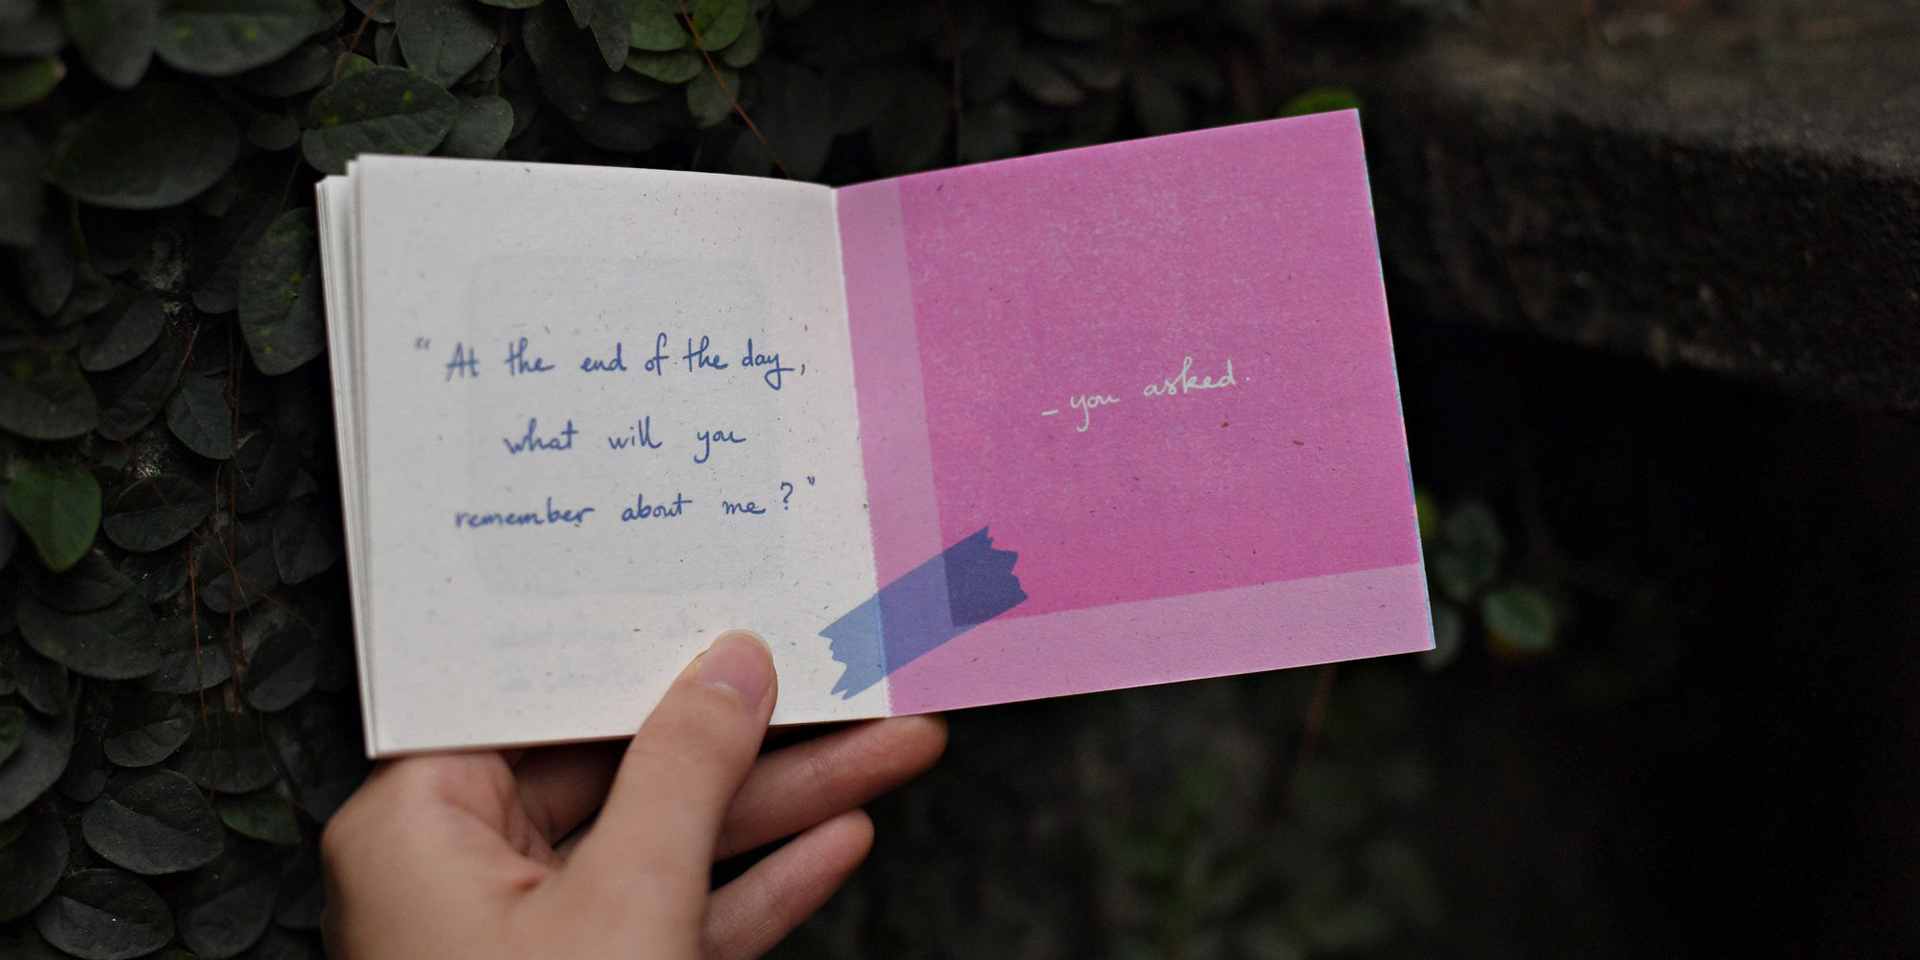 "At the end of the day,
what will you
remember about me?"
- you asked.